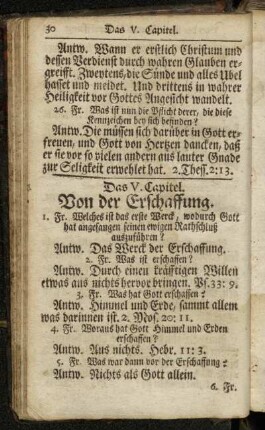 30 Das V. Capitel.
Antw. Wann er erstlich Christum und
dessen Verdienst durch wahren Glauben er-
greifft. Zweytens, die Sünde und alles Ubel
hasset und meidet. Und drittens in wahrer
Heiligkeit vor Gottes Angesicht wandelt.
26. Fr. Was ist nun die Pflicht derer, die diese
Kennzeichen bey sich befinden?
Antw. Die müssen sich darüber in Gott er-
freuen, und Gott von Hertzen dancken, daß
er sie vor so vielen andern aus lauter Gnade
zur Seligkeit erwehlet hat. 2. Thess. 2:13.
Das V. Capitel.
Von der Erschaffung.
1. Fr. Welches ist das erste Werck, wodurch Gott
hat angefangen seinen ewigen Rathschluß
auszuführen?
Antw. Das Werck der Erschaffung.
2. Fr. Was ist erschaffen?
Antw. Durch einen kräfftigen Willen
etwas aus nichts hervor bringen. Ps. 33: 9.
3. Fr. Was hat Gott erschaffen?
Antw. Himmel und Erde, sammt allem
was darinnen ist. 2. Mos. 20: 11.
4. Fr. Woraus hat Gott Himmel und Erden
erschaffen?
Antw. Aus nichts. Hebr. 11: 3.
5. Fr. Was war dann vor der Erschaffung?
Antw. Nichts als Gott allein.
6. Fr.